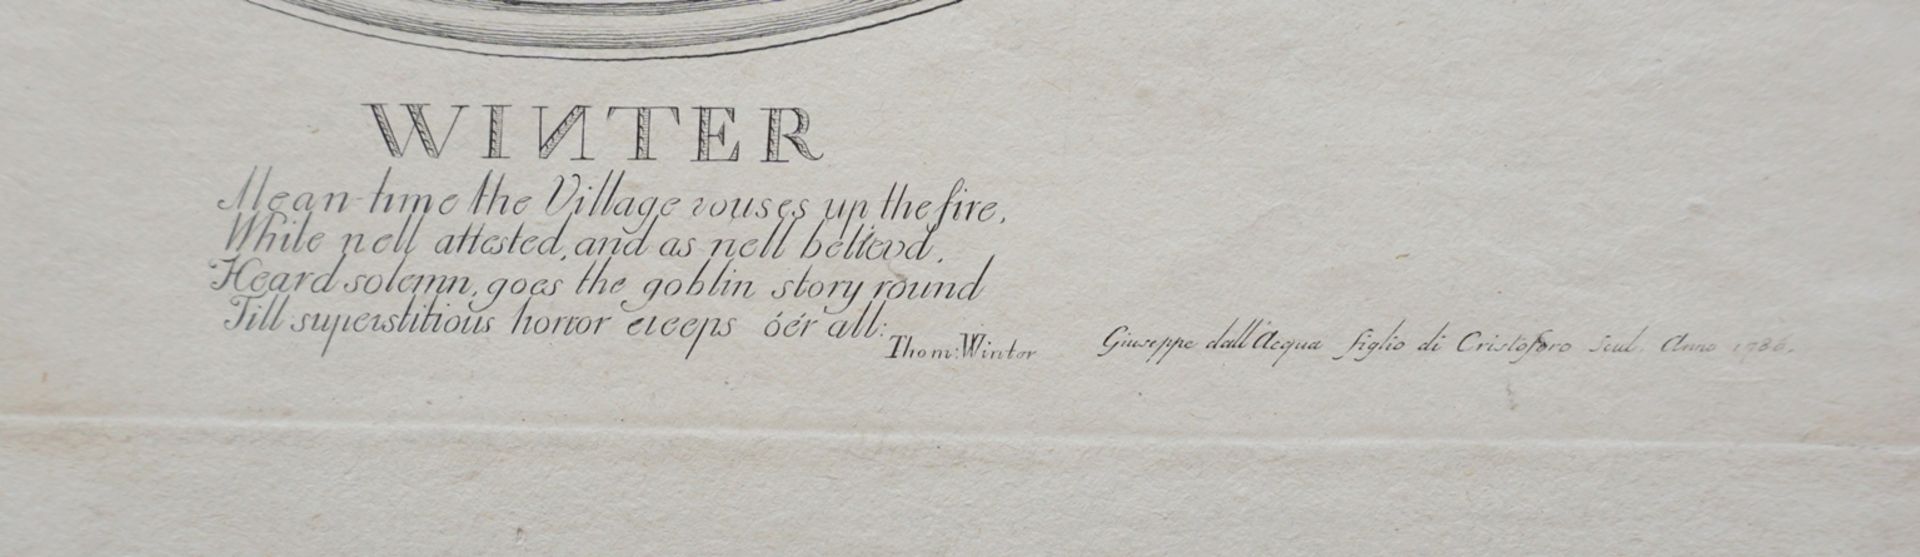 WINTER
Mean-time the Village rouses up the fire,
While nell attested, and as nell believd,
Heard solemn, goes the goblin story round
Till superstitious horror creeps óér all:
Thom: Winter
Giuseppe dall'Acqua figlio di Cristoforo Scul. Anno 1786.